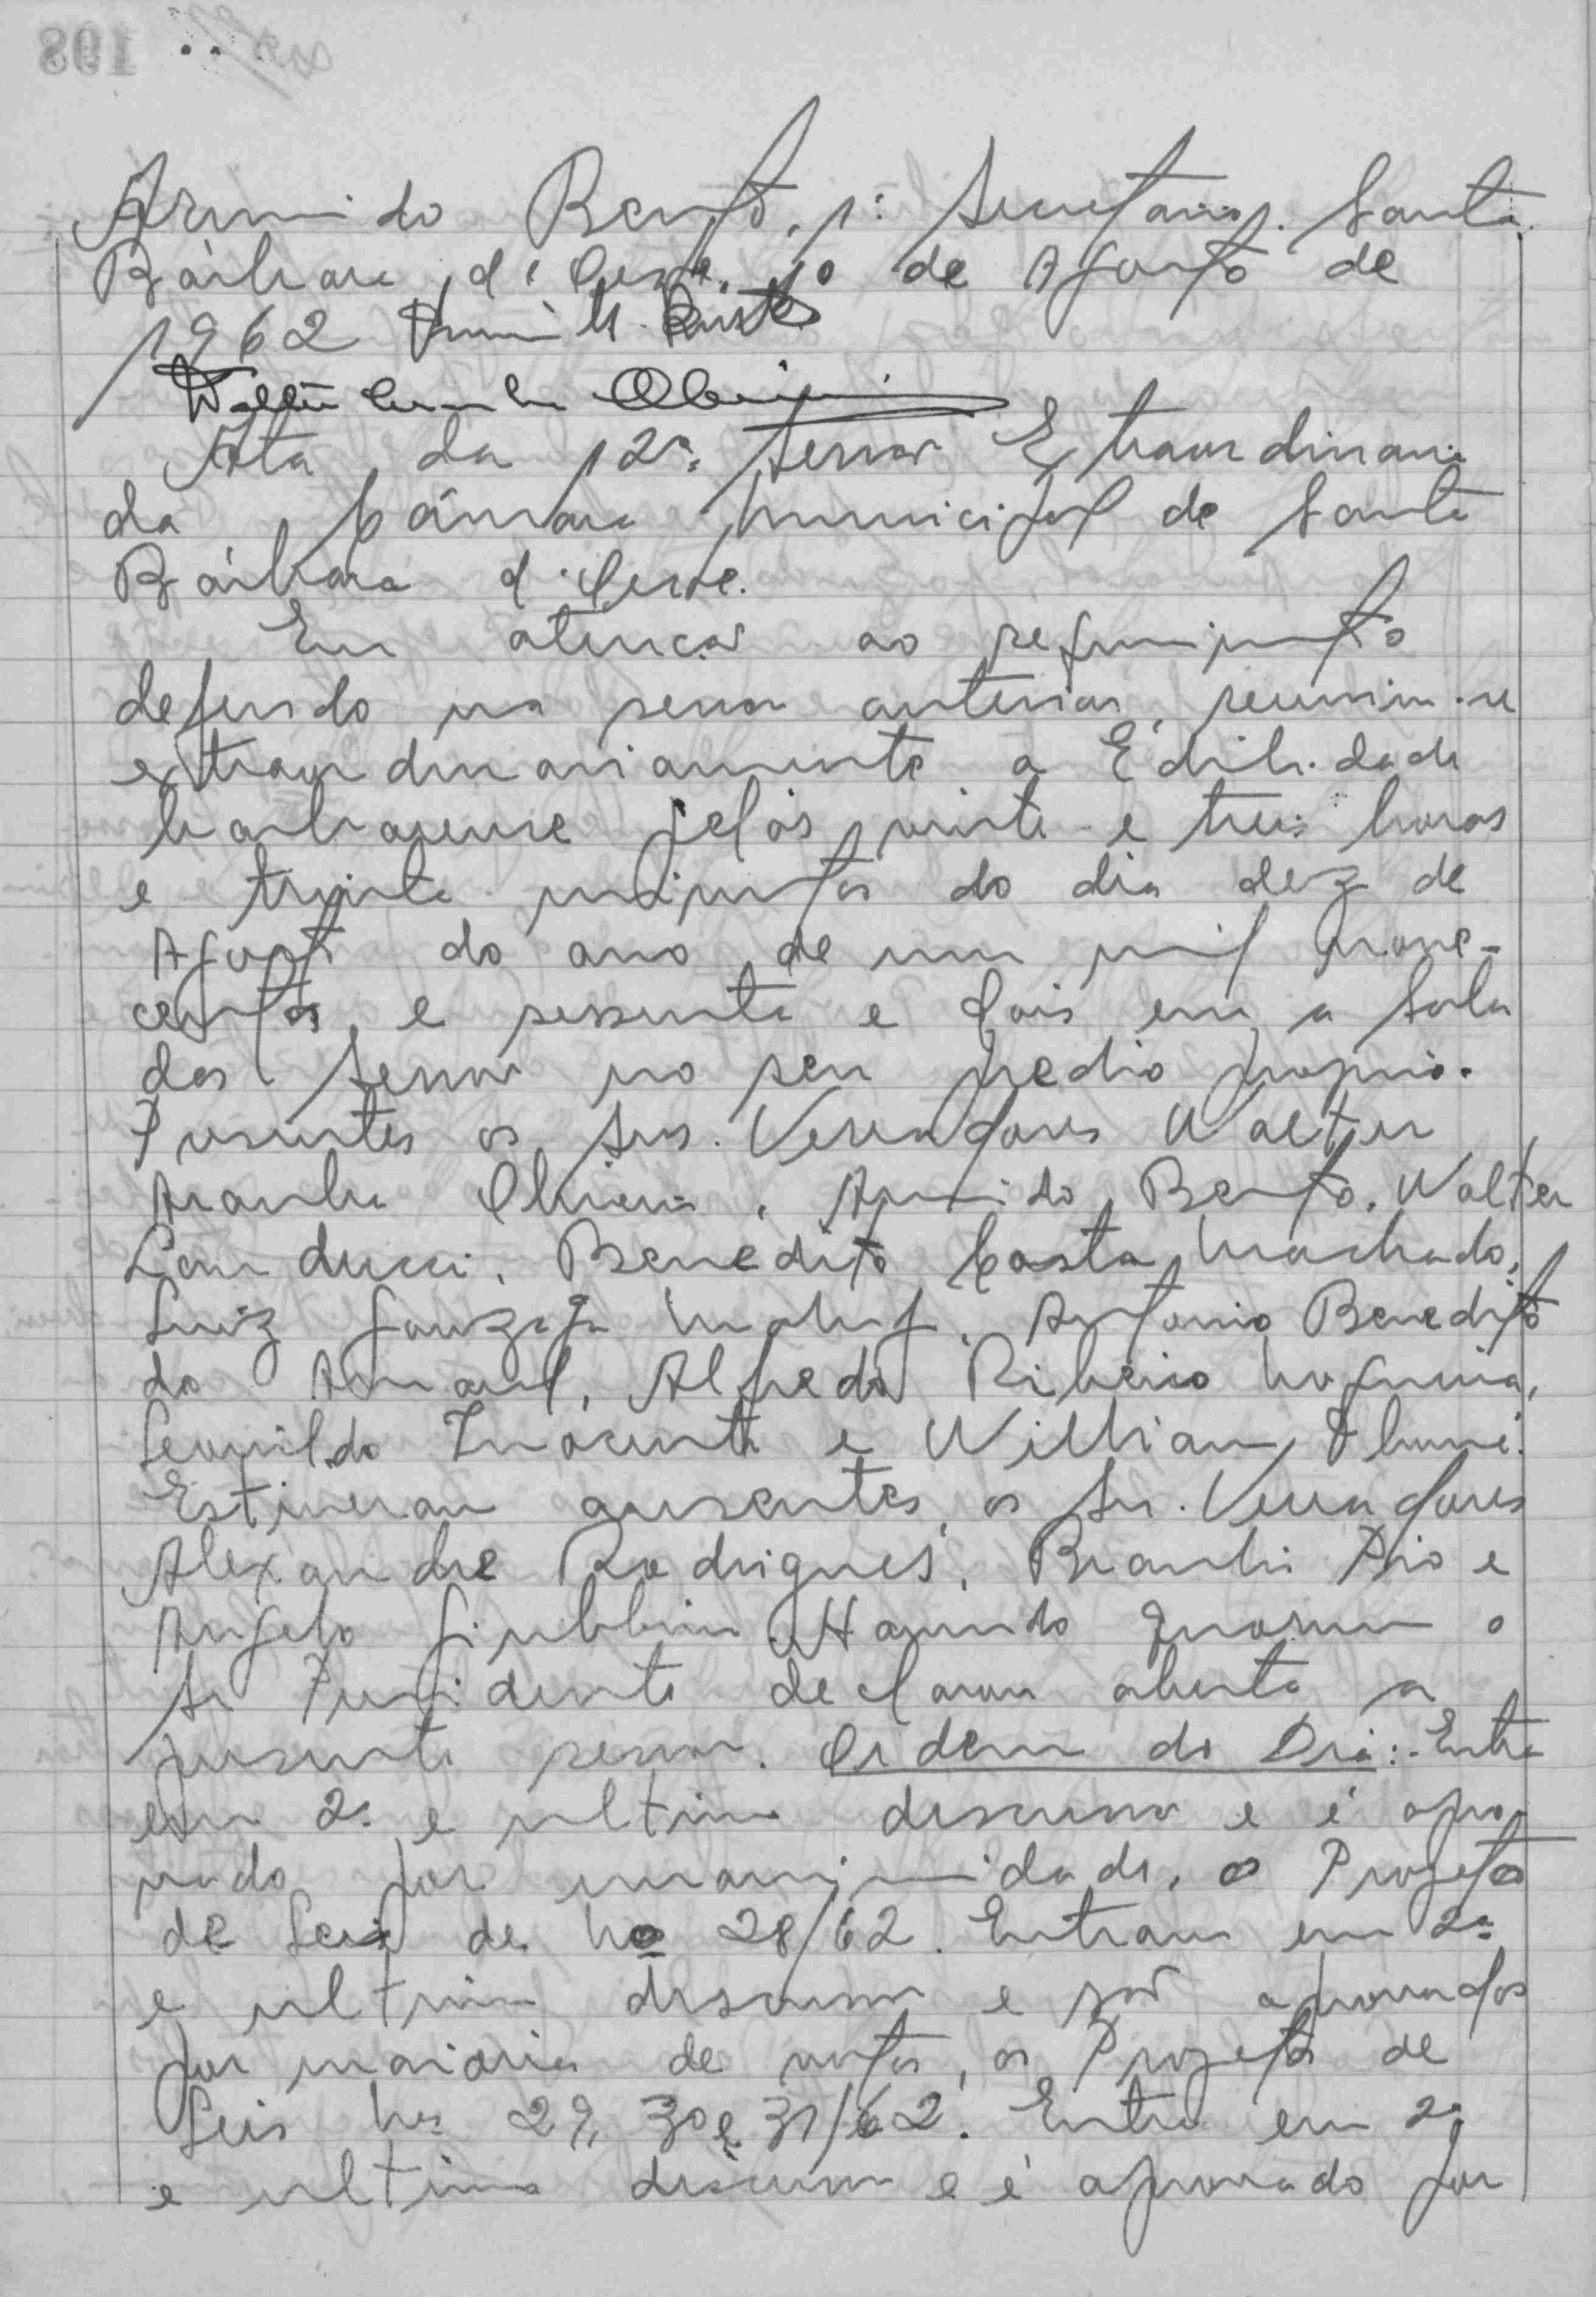 Armindo Bento, 1º Secretario. Santa
Bárbara d'Oeste, 10 de Agosto de
1962
Ata da 12ª Sessão Extraordinaria
da Câmara Municipal de Santa
Bárbara d'Oeste.
Em atenção ao requerimento
deferido na sessão anterior, reuniu-se
extraordinariamente a Edilidade
barbarense pelas vinte e tres horas
e trinta minutos do dia dez de
Agosto do ano de um mil nove-
centos e sessenta e dois em a Sala
das Sessões no seu predio proprio.
Presentes os Srs. Vereadores Walter
Aranha Oliveira, Armindo Bento, Walter
Landucci, Benedito Costa Machado,
Luiz Gonzaga Maluf, Antonio Benedito
do Amaral, Alfredo Ribeiro Nogueira,
Leonildo Inocenti e Willian
Estiveram ausentes os Sr. Vereadores
Alexandre Rodrigues, Pio e
Angelo Giubbina. Havendo quorum o
Sr Presidente declarou aberta a
presente sessão. Ordem do Dia:- Entra
em 2ª e ultima discussão e é apro-
vado por unanimidade, o Projeto
de Lei de No 28/62. Entram em 2ª
e ultima discussão e são aprovados
por maioria de votos, os Projetos de
Leis Nos 29, 30 e 31/62. Entra em 2ª
e ultima discussão e é aprovado por